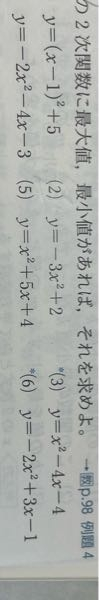 の2次関数に最大値,最小値があれば,それを求めよ。 →p.98 例題4
y=(x-1)²+5 (2) y=-3x²+2 *(3) y=x²-4x-4
y=-2x²-4x-3 (5) y=x²+5x+4 *(6) y=-2x²+3x-1